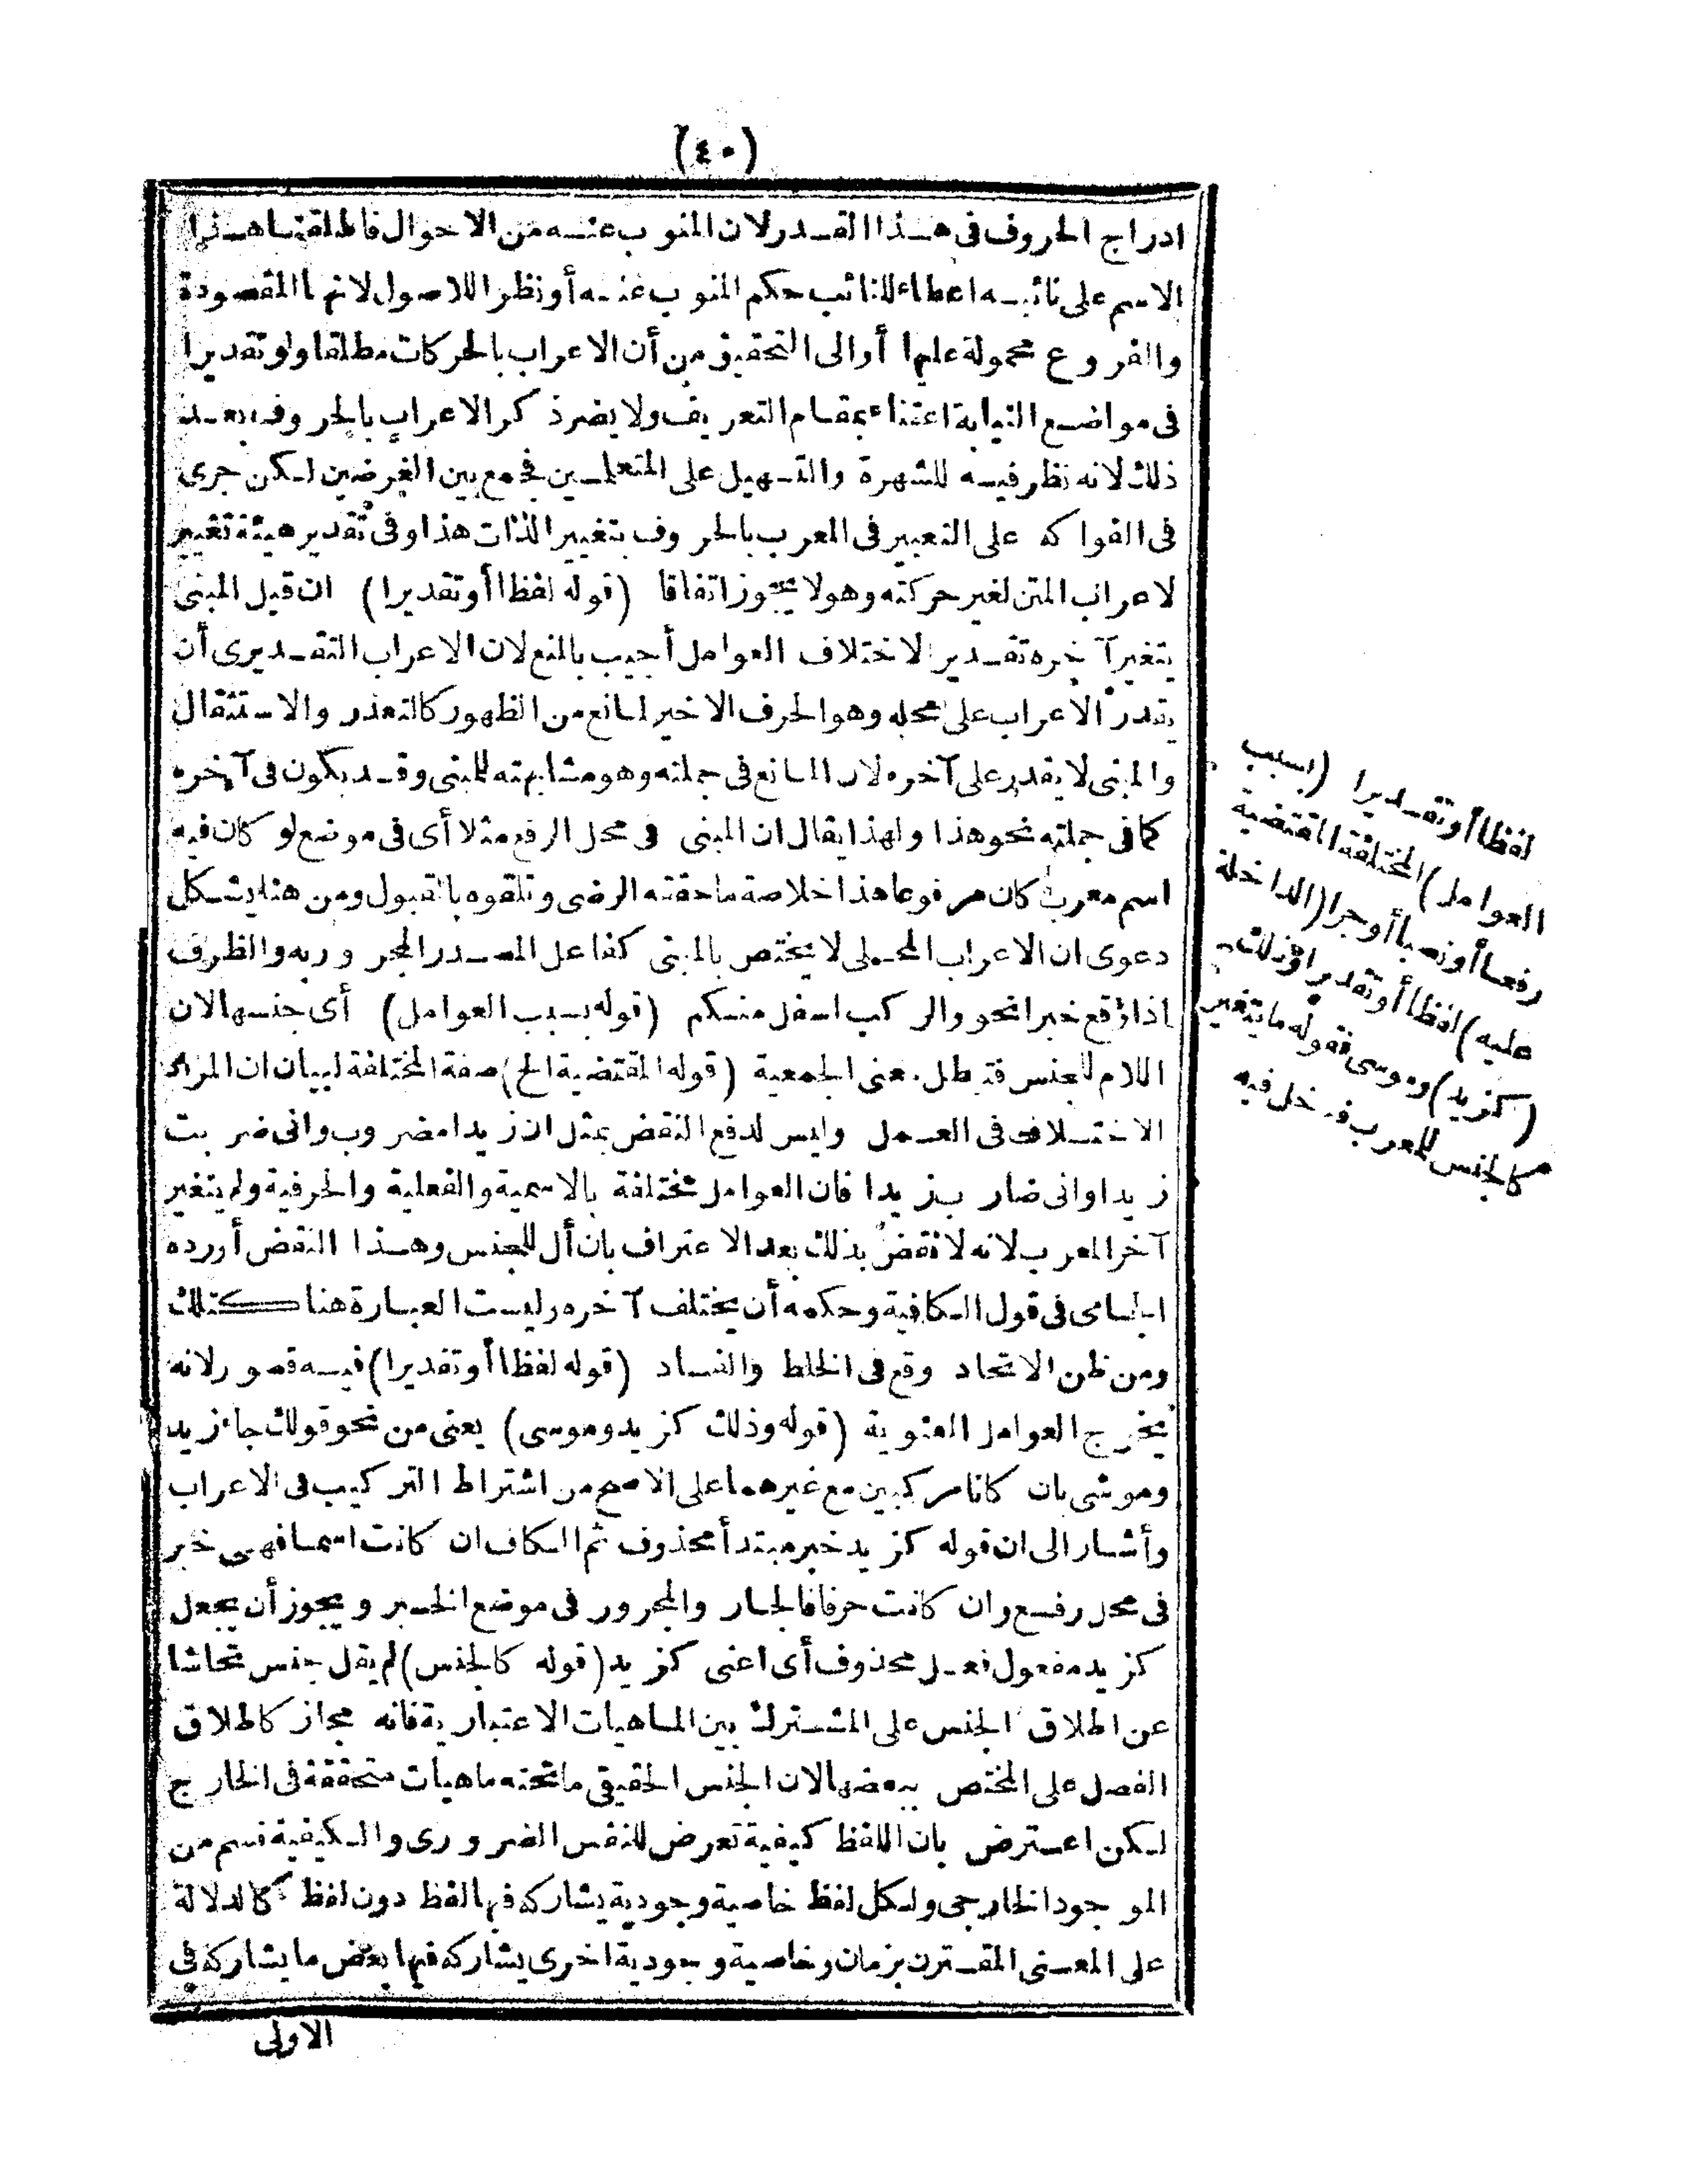 (٤٠)
ادراج الحروف فى هذا القدر لان المنوب عنه من الاحوال فاطلقنا هذا
الاسم على نائبه اعطاء للنائب حكم المنوب عنه أو نظرا للاصول لانها المقصودة
والفروع محمولة عليها أو الى التحقيق من أن الاعراب بالحركات مطلقا ولو تقديرا
فى مواضع النيابة اعتناء بمقام التعريف ولا يضر ذكر الاعراب بالحروف بعد
ذلك لانه نظر فيه للشهرة والتسهيل على المتعلمين فجمع بين الغرضين لكن جرى
فى الفواكه على التعبير فى المعرب بالحروف بتغيير الذات هذا وفى تقدير هيئة تغيير
لاعراب المتن لغير حركته وهو لا يجوز اتفاقا (قوله لفظا أو تقديرا) ان قيل المبنى
يتغير آخره تقدير الاختلاف العوامل أجيب بالمنع لان الاعراب التقديرى أن
يقدر الاعراب على محله وهو الحرف الاخير لمانع من الظهور كالتعذر والاستثقال
والمبنى لا يقدر على آخره لان المانع فى جملته وهو مشابهته للمبنى وقد يكون فى آخره
كما فى جملته نحو هذا ولهذا يقال ان المبنى فى محل الرفع مثلا أى فى موضع لو كان فيه
اسم معرب كان مرفوعا هذا خلاصة ما حققه الرضى وتلقوه بالقبول ومن هنا يشكل
دعوى ان الاعراب المحلى لا يختص بالمبنى كفاعل المصدر المجرور به والظرف
اذا وقع خبرا نحو والركب اسفل منكم (قوله بسبب العوامل) أى جنسها لان
اللام للجنس فتبطل معنى الجمعية (قوله المقتضية الخ) صفة المختلفة لبيان ان المراد
الاختلاف فى العمل وليس لدفع النقض بمثل ان زيدا مضروب وانى ضربت
زيدا وانى ضارب زيدا فان العوامل مختلفة بالاسمية والفعلية والحرفية ولم يتغير
آخر المعرب لانه لا نقض بذلك بعد الاعتراف بان أل للجنس وهذا النقض أورده
الجامى فى قول الكافية وحكمه أن يختلف آخره وليست العبارة هنا كتلك
ومن ظن الاتحاد وقع فى الخلط والفساد (قوله لفظا أو تقديرا) فيه قصور لانه
يخرج العوامل المعنوية (قوله وذلك كزيد وموسى) يعنى من نحو قولك جاء زيد
وموسى بان كانا مركبين مع غيرهما على الاصح من اشتراط التركيب فى الاعراب
وأشار الى ان قوله كزيد خبر مبتدأ محذوف ثم الكاف ان كانت اسما فهى خبر
فى محل رفع وان كانت حرفا فالجار والمجرور فى موضع الخبر ويجوز أن يجعل
كزيد مفعول فعل محذوف أى اعنى كزيد (قوله كالجنس) لم يقل جنس تحاشا
عن اطلاق الجنس على المشترك بين الماهيات الاعتبارية فانه مجاز كاطلاق
الفصل على المختص ببعضها لان الجنس الحقيقى ما تحته ماهيات متحققة فى الخارج
لكن اعترض بان اللفظ كيفية تعرض للنفس الضرورى والكيفية قسم من
الموجود الخارجى ولكل لفظ خاصية وجودية يشاركه فيها لفظ دون لفظ كالدلالة
على المعنى المقترن بزمان وخاصية وجودية اخرى يشاركه فيها بعض ما يشاركه فى
الاولى
لفظا أو تقديرا (بسبب
العوامل) المختلفة المقتضية
رفعا أو نصبا أو جرا (الداخلة
عليه) لفظا أو تقديرا وذلك
(كزيد) وموسى فقوله ما يتغير
كالجنس للمعرب فدخل فيه